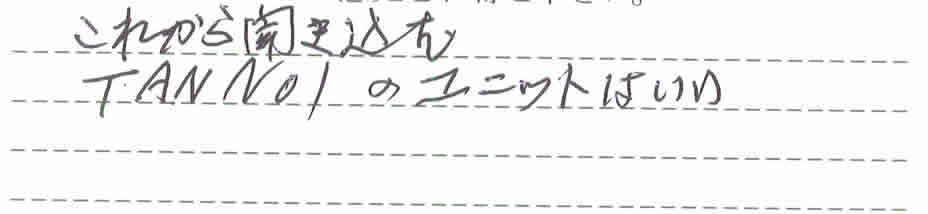 これから聞き込む
TANNOIのユニットはいい